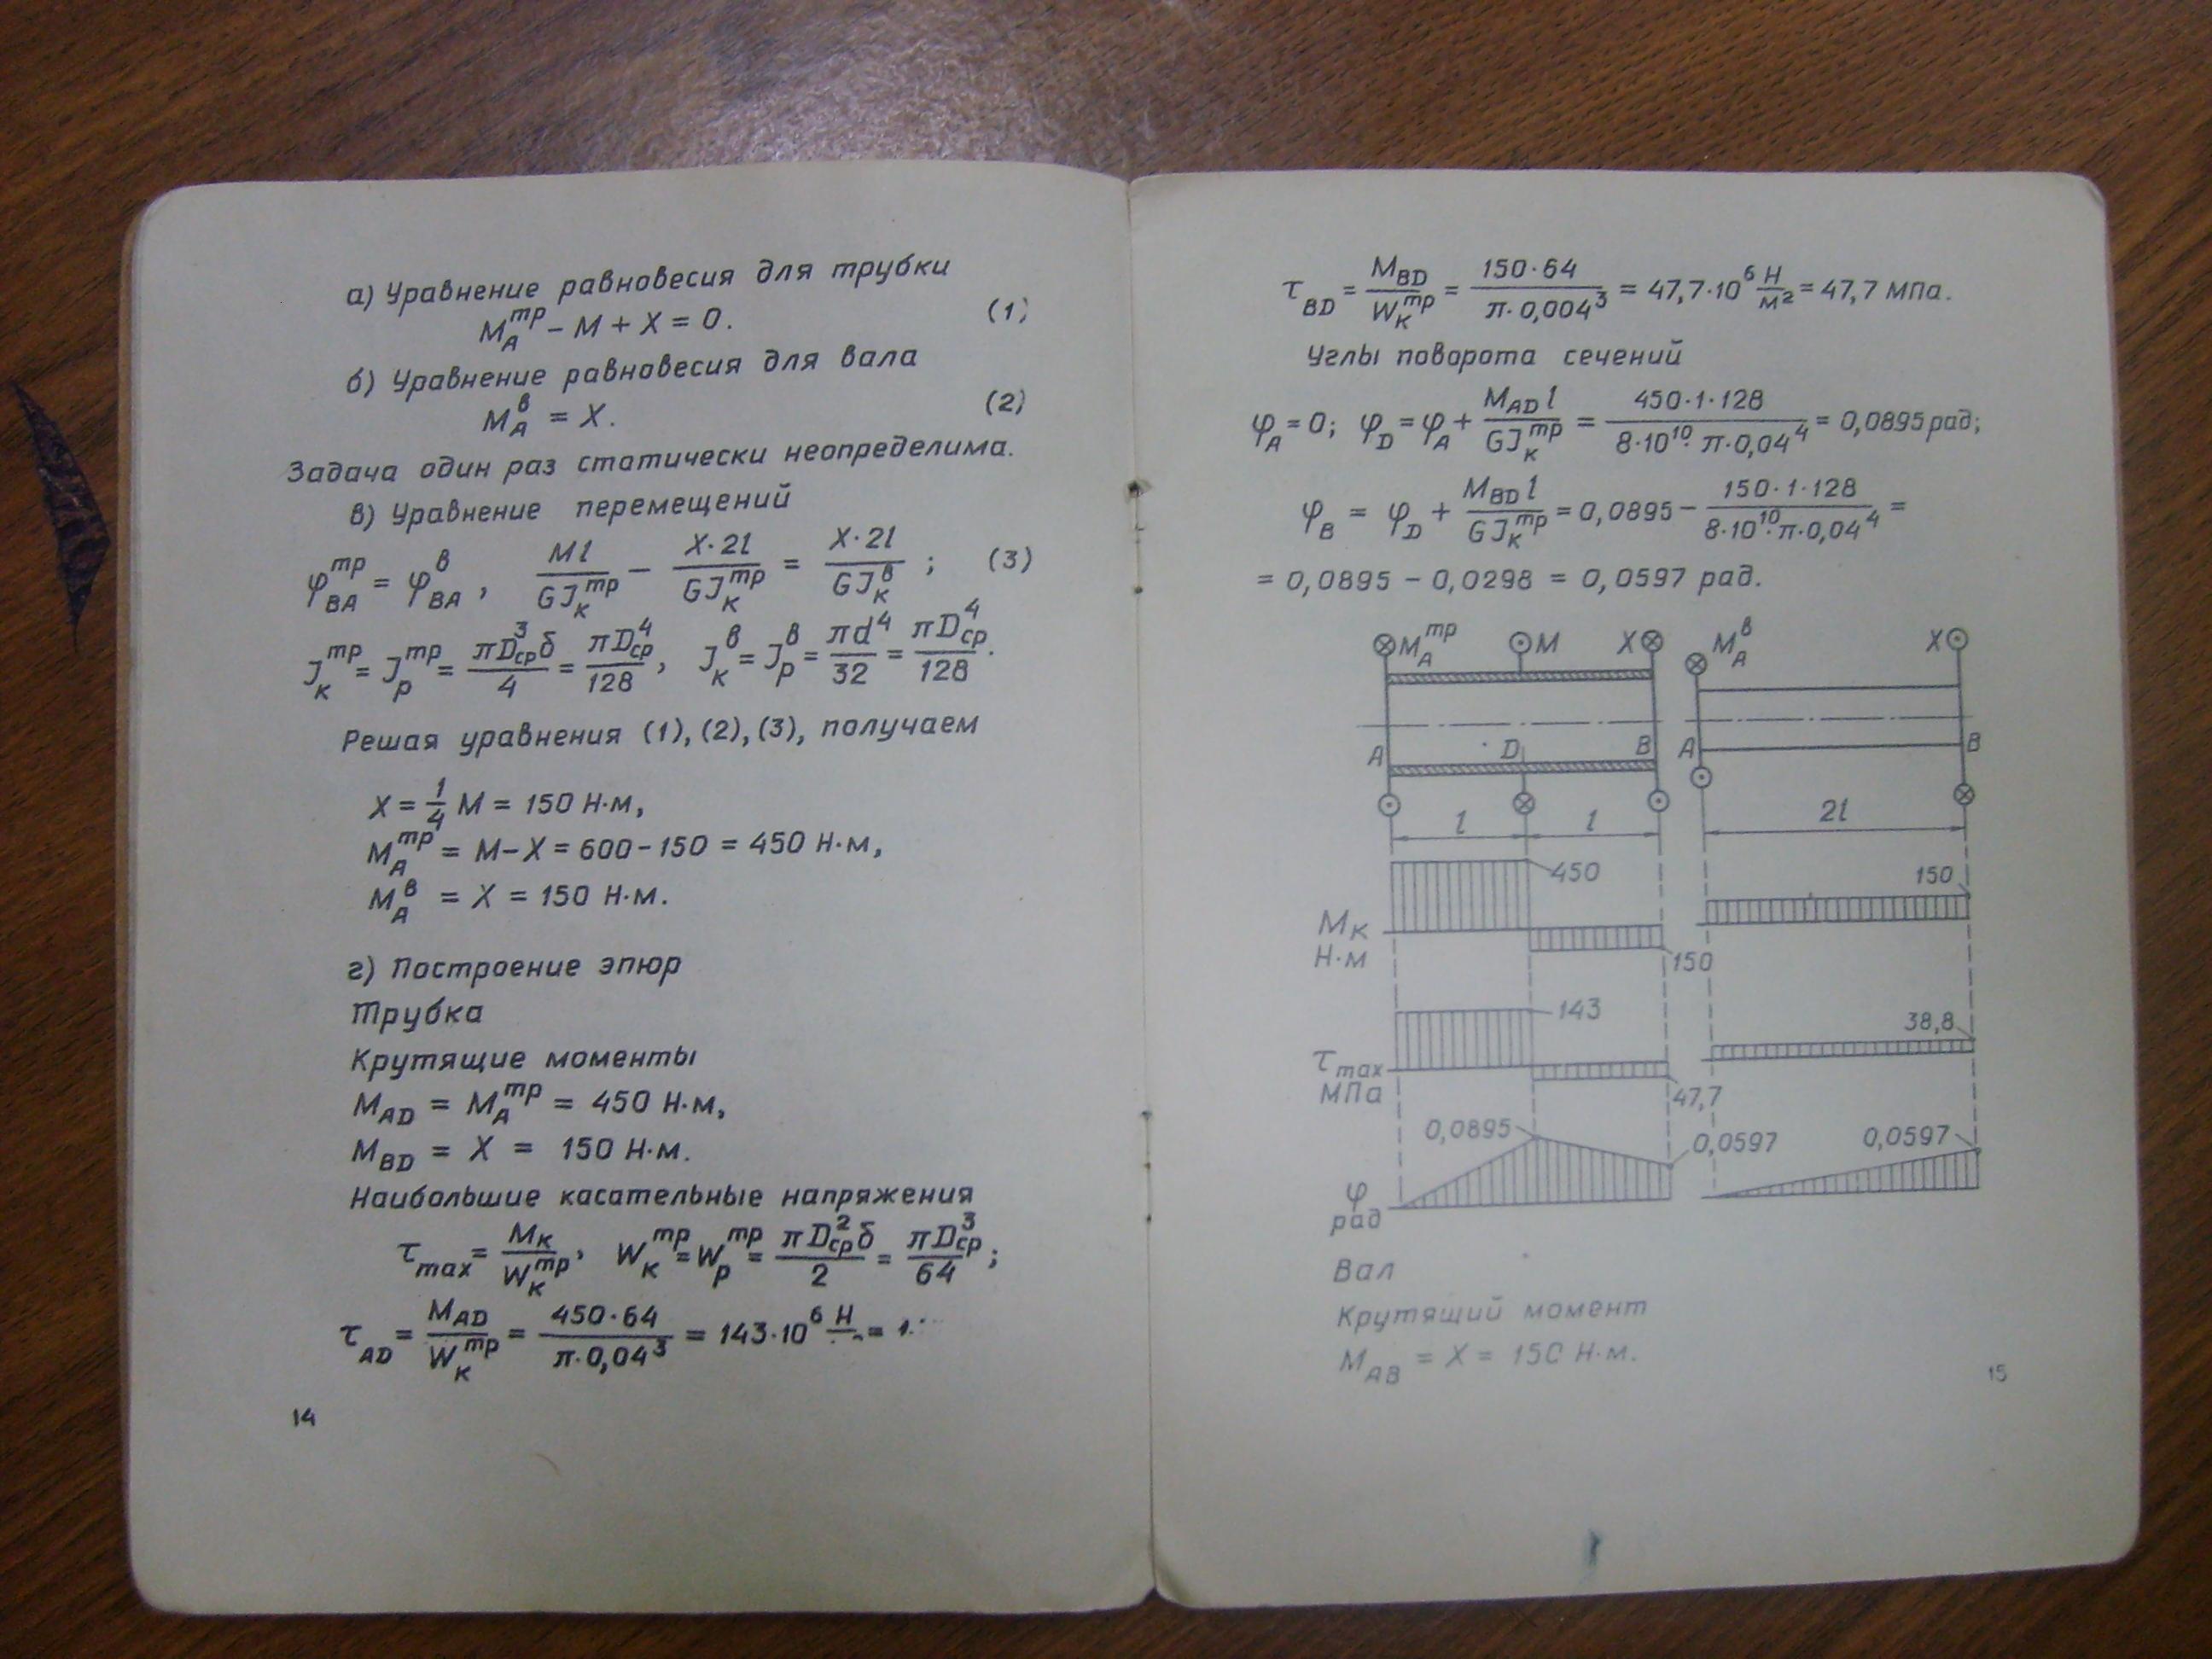 а) Уравнение равновесия для трубки
M_A^тр − M + X = 0. (1)
б) Уравнение равновесия для вала
M_A^в = X. (2)
Задача один раз статически неопределима.
в) Уравнение перемещений
φ_BA^тр = φ_BA^в, Ml/GJ_к^тр − X·2l/GJ_к^тр = X·2l/GJ_к^в; (3)
J_к^тр = J_p^тр = πD_ср^3 δ/4 = πD_ср^4/128, J_к^в = J_p^в = πd^4/32 = πD_ср^4/128.
Решая уравнения (1), (2), (3), получаем
X = 1/4 M = 150 Н·м,
M_A^тр = M − X = 600 − 150 = 450 Н·м,
M_A^в = X = 150 Н·м.
г) Построение эпюр
Трубка
Крутящие моменты
M_AD = M_A^тр = 450 Н·м,
M_BD = X = 150 Н·м.
Наибольшие касательные напряжения
τ_max = M_к/W_к^тр, W_к^тр = W_p^тр = πD_ср^2 δ/2 = πD_ср^3/64;
τ_AD = M_AD/W_к^тр = 450·64/π·0,04^3 = 143·10^6 Н/ =
14
τ_BD = M_BD/W_к^тр = 150·64/π·0,004^3 = 47,7·10^6 Н/м^2 = 47,7 МПа.
Углы поворота сечений
φ_A = 0; φ_D = φ_A + M_AD l/GJ_к^тр = 450·1·128/8·10^10·π·0,04^4 = 0,0895 рад;
φ_B = φ_D + M_BD l/GJ_к^тр = 0,0895 − 150·1·128/8·10^10·π·0,04^4 =
= 0,0895 − 0,0298 = 0,0597 рад.
M_A^тр M X M_A^в X
A D B A B
l l 2l
450 150
M_к
Н·м
150
143 38,8
τ_max
МПа
47,7
0,0895 0,0597 0,0597
φ
рад
Вал
Крутящий момент
M_AB = X = 150 Н·м.
15